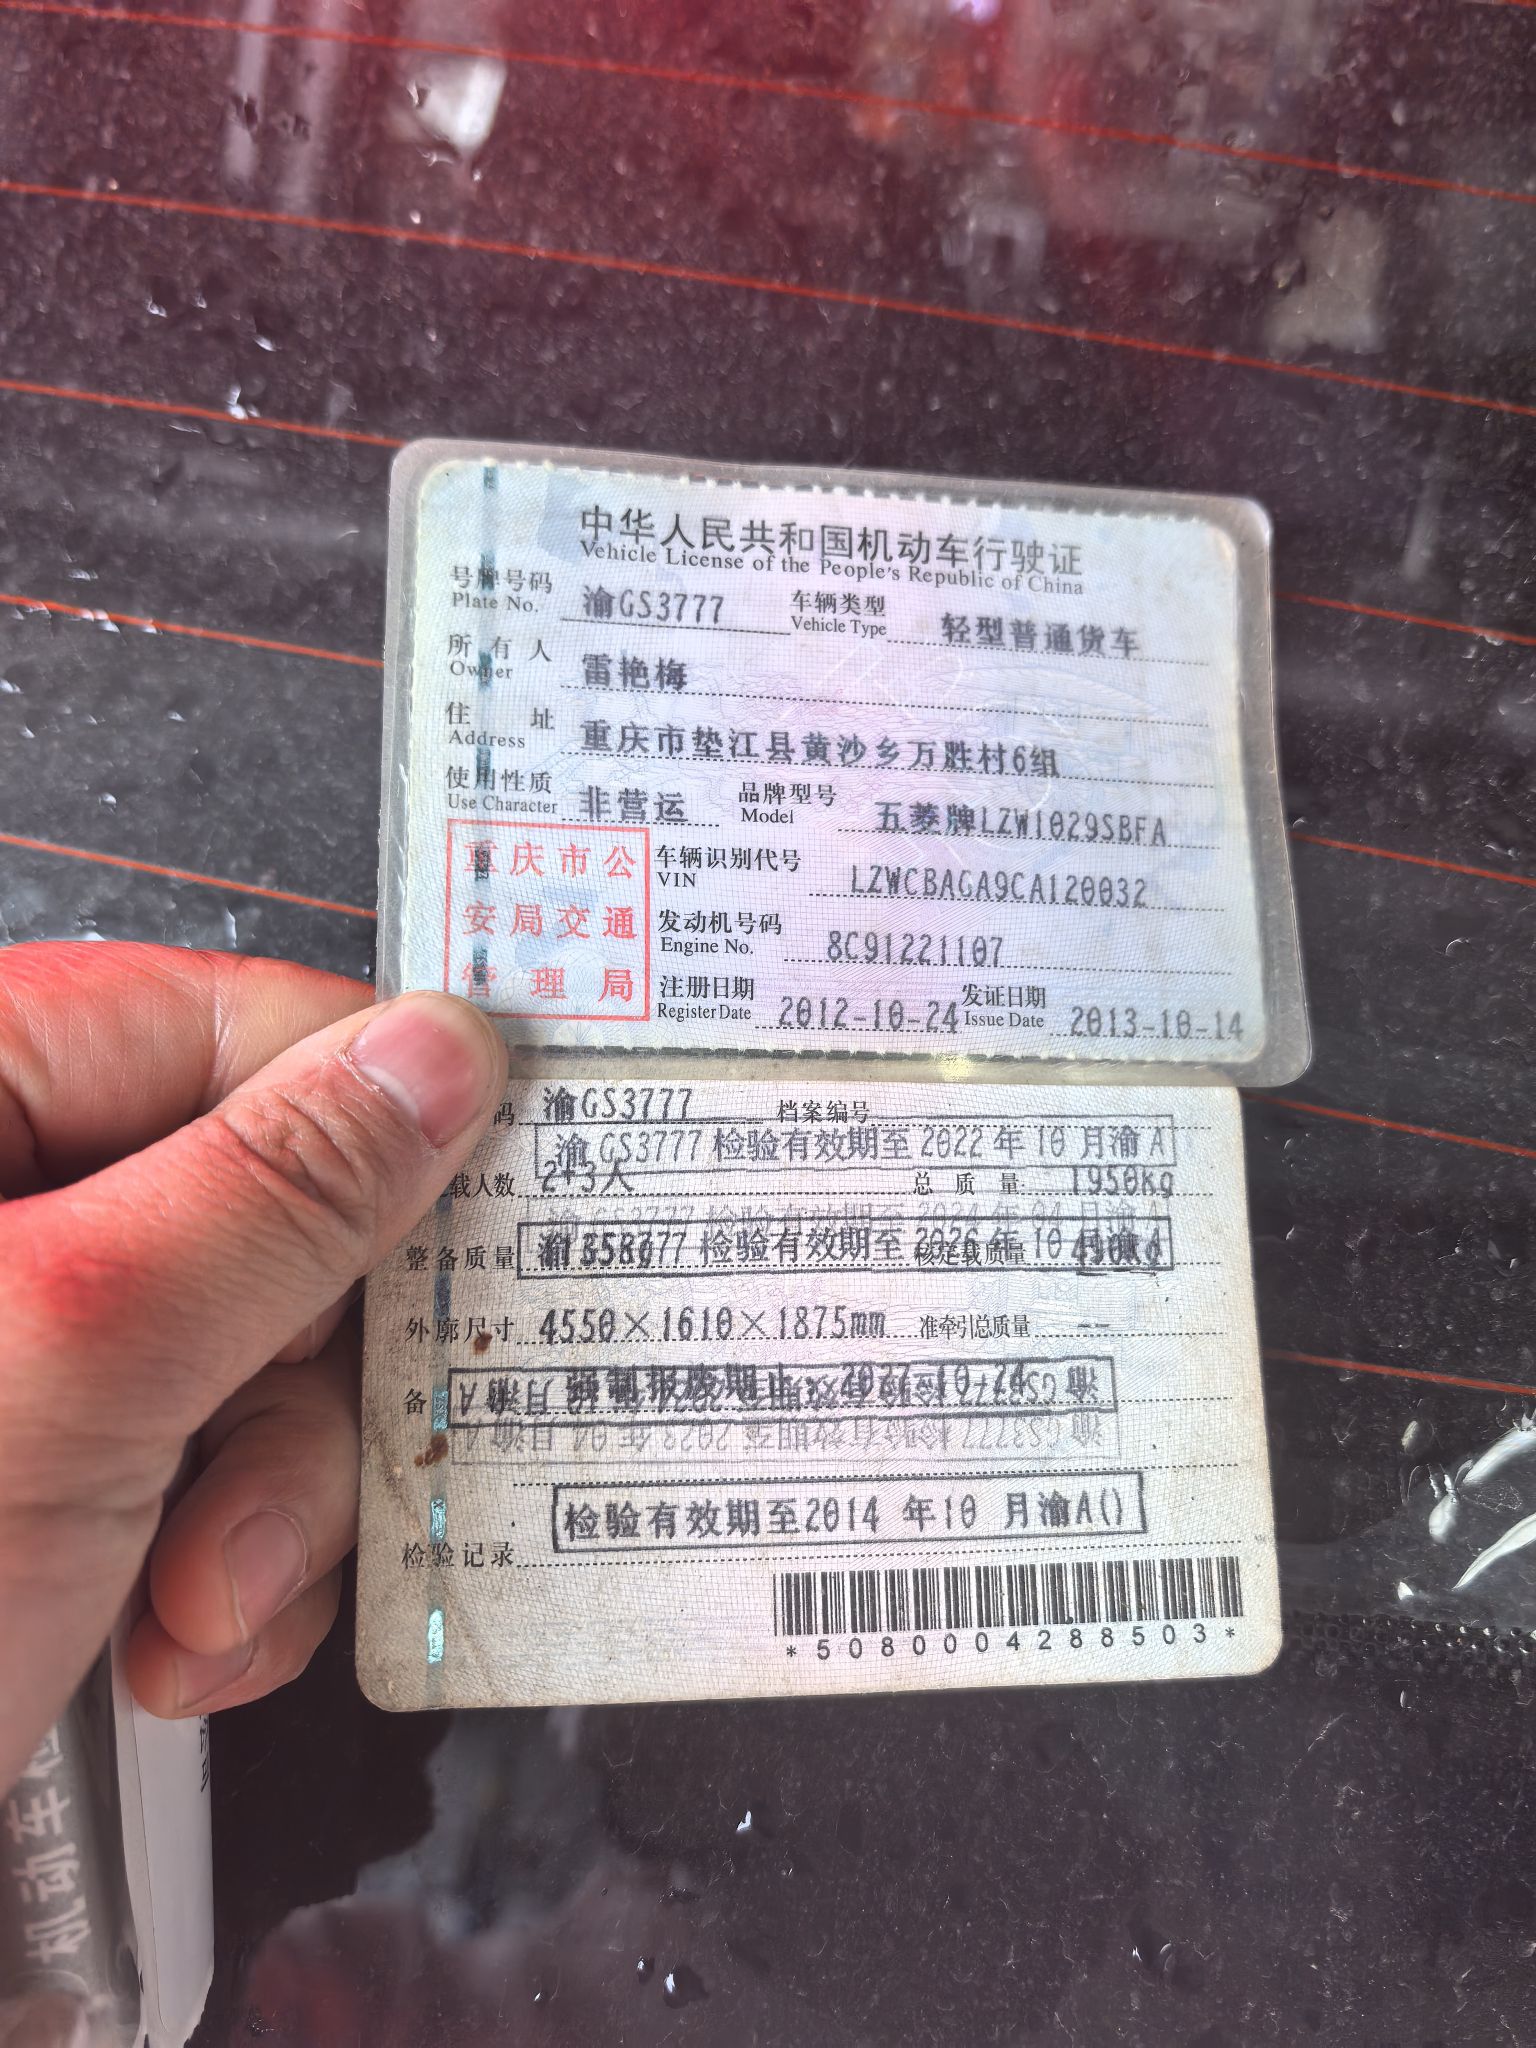 中华人民共和国机动车行驶证
Vehicle License of the People's Republic of China
号牌号码 渝GS3777 车辆类型 轻型普通货车
Plate No. Vehicle Type
所有人 雷艳梅
Owner
住址 重庆市垫江县黄沙乡万胜村6组
Address
使用性质 非营运 品牌型号 五菱牌LZW1029SBFA
Use Character Model
重庆市公
安局交通
管理局
车辆识别代号 LZWCBAGA9CA120032
VIN
发动机号码 8C91221107
Engine No.
注册日期 2012-10-24 发证日期 2013-10-14
Register Date Issue Date
码 渝GS3777 档案编号
渝GS3777 检验有效期至 2022 年 10 月渝A
载人数 2+3人 总质量 1950kg
渝GS3777 检验有效期至 2024 年 04 月渝A
检验有效期至 2026 年 10 月渝A
整备质量 核定载质量
外廓尺寸 4550×1610×1875mm 准牵引总质量 --
备
GS3777 检验有效期至 2023 年 04 月渝A
检验有效期至2014 年10 月渝A()
检验记录
*5080004288503*
机动车检